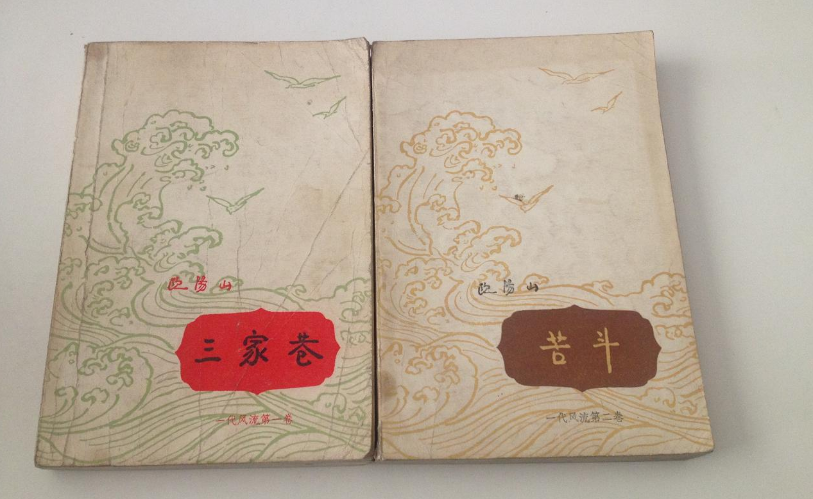 欧阳山
三家巷
一代风流第一卷
欧阳山
苦斗
一代风流第二卷